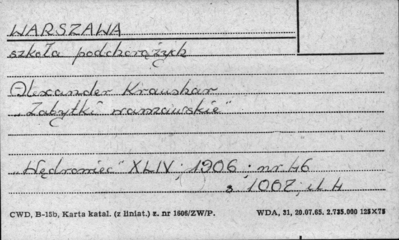 WARSZAWA
szkoła podchorążych
Alexander Kraushar
„Zabytki warszawskie"
„Wędrowiec" XLIV, 1906, nr 46
s. 1002, il. 4
CWD, B-15b, Karta katal. (z liniat.) z. nr 1606/ZW/P. WDA, 31, 20.07.65, 2.725.000 125X75